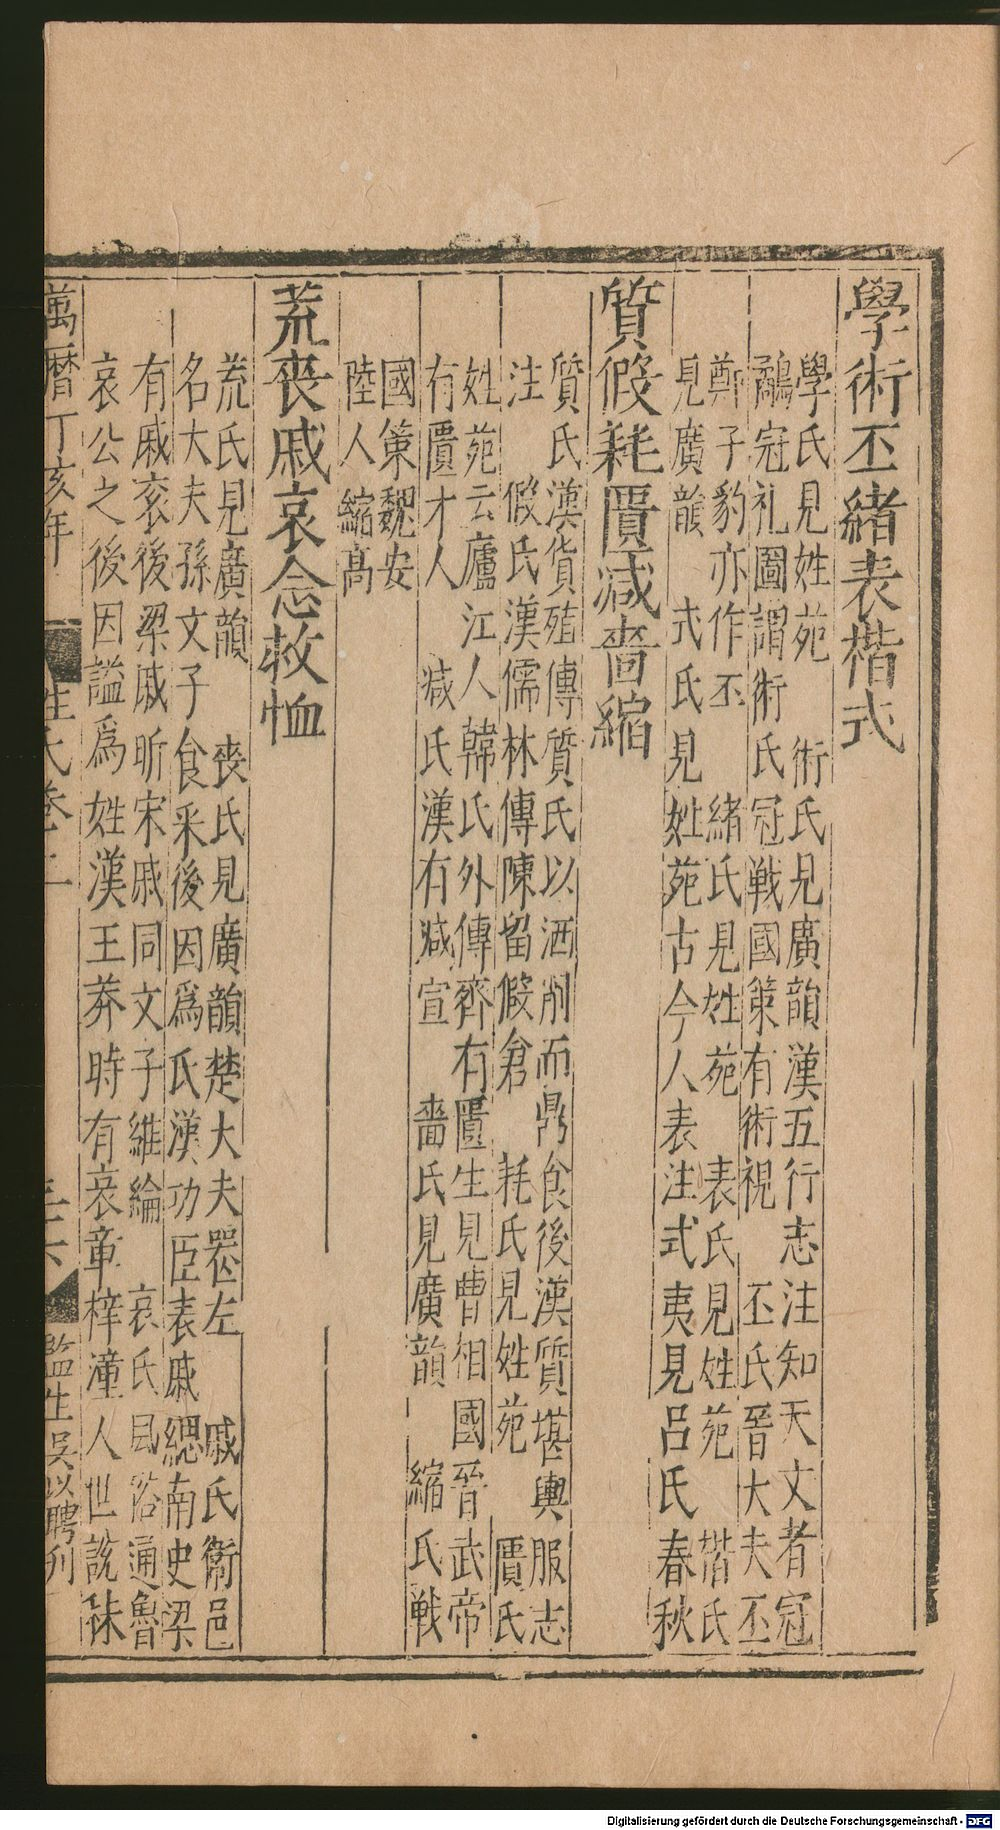 學術丕緒表楷式
學氏見姓苑　術氏見廣韻漢五行志注知天文者冠
鷸冠礼圖謂術氏冠戦國策有術視　丕氏晉大夫丕
鄭子豹亦作丕　緒氏見姓苑　表氏見姓苑　楷氏
見廣韻　式氏見姓苑古今人表注式夷見呂氏春秋
質假耗匱减嗇縮
質氏漢貨殖傳質氏以洒削而鼎食後漢質堪輿服志
注　假氏漢儒林傳陳留假倉　耗氏見姓苑　匱氏
姓苑云廬江人韓氏外傳齊有匱生見曹相國晉武帝
有匱才人　减氏漢有减宣　嗇氏見廣韻　縮氏戦
國策魏安
陸人縮高
荒喪戚哀念救恤
荒氏見廣韻　喪氏見廣韻楚大夫喪左　戚氏衛邑
名大夫孫文子食采後因爲氏漢功臣表戚鰓南史梁
有戚衮後梁戚昕宋戚同文子維綸　哀氏風俗通魯
哀公之後因謚爲姓漢王莽時有哀章梓潼人世説秣
萬曆丁亥年
姓氏卷二
二六
監生吳以聘刋
Digitalisierung gefördert durch die Deutsche Forschungsgemeinschaft - DFG